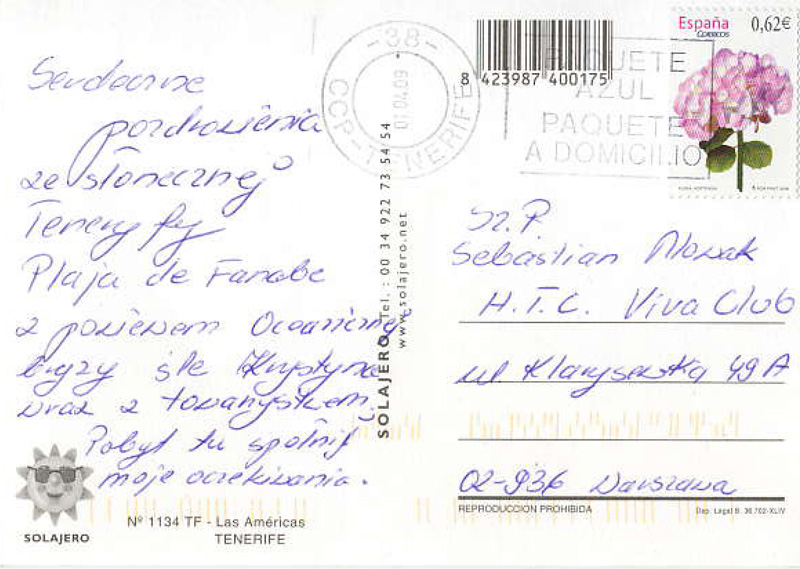 Serdeczne
pozdrowienia
ze słonecznej
Teneryfy
Plaja de Fanabe
z powiewem Oceanicznej
bryzy śle Krystyna
wraz z towarzystwem.
Pobyt tu spełnił
moje oczekiwania.
SOLAJERO
Nº 1134 TF - Las Américas
TENERIFE
SOLAJERO Tel.: 00 34 922 73 54 54
www.solajero.net
-38-
CCP-TENERIFE
01.04.09
8 423987 400175
PAQUETE
AZUL
PAQUETE
A DOMICILIO
España
CORREOS
0,62€
Sz.P.
Sebastian Nowak
H.T.C. Viva Club
ul. Klarysewska 49A
02-936 Warszawa
REPRODUCCION PROHIBIDA
Dep. Legal B. 36.702-XLIV